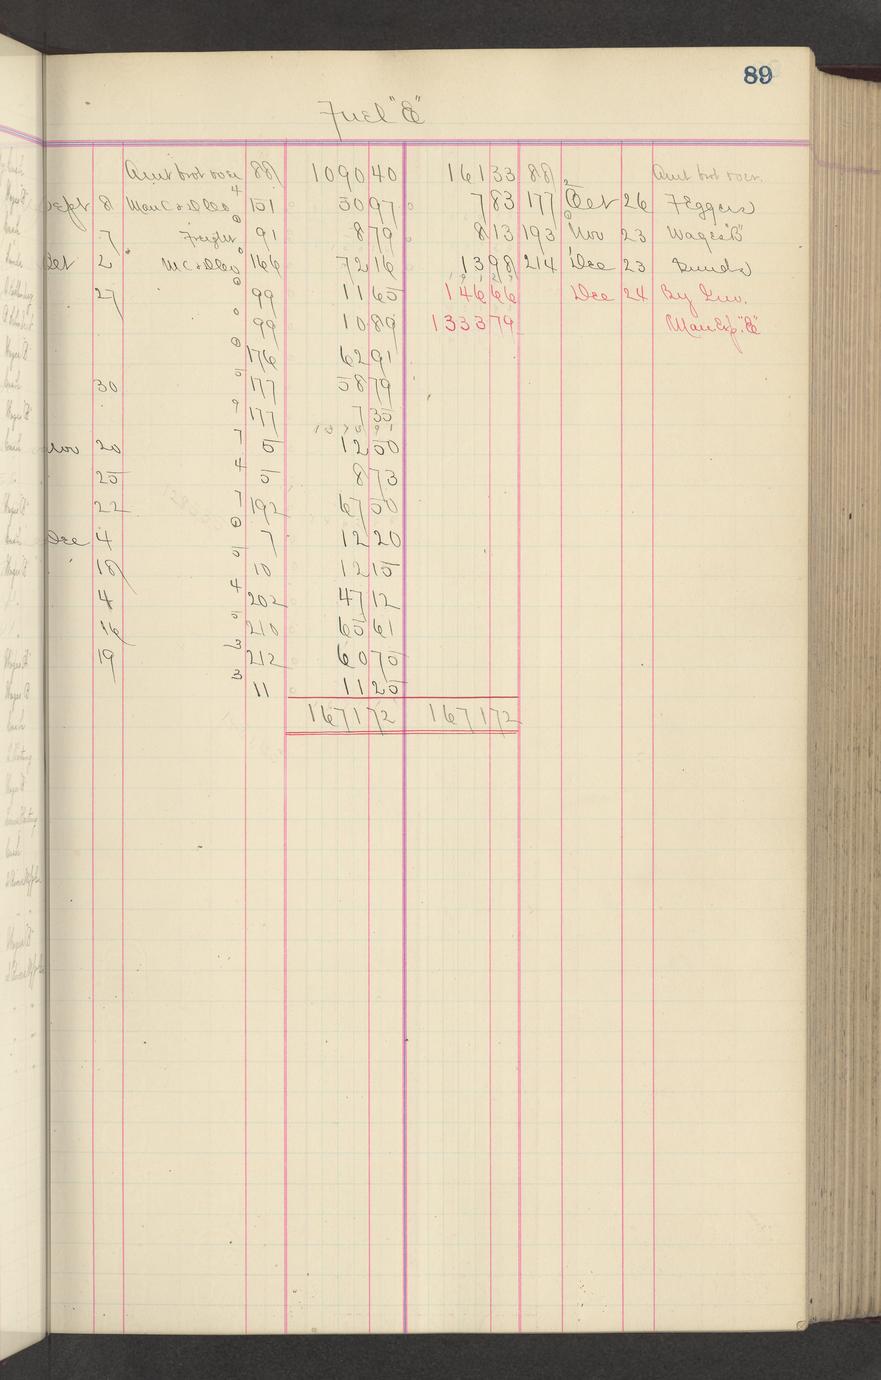 89
Fuel "E"
Amt brot over 88 1090 40 161 33 88 Amt brot over.
Sept 8 151 50 97 7 83 177 Oct 26 F Eggers
7 Freight 91 8 79 8 13 193 Nov 23 Wages "B"
Oct 2 166 72 16 13 98 214 Dec 23 Sunds
27 99 11 65 146 66 Dec 24 By Inv.
99 10 89 1333 79 Man Exp. "E"
176 62 91
30 177 58 79
177 7 35
Nov 20 5 12 50
25 5 8 73
22 192 67 50
Dec 4 7 12 20
18 10 12 15
4 202 47 12
16 210 65 61
19 212 60 75
11 11 25
1671 72 1671 72